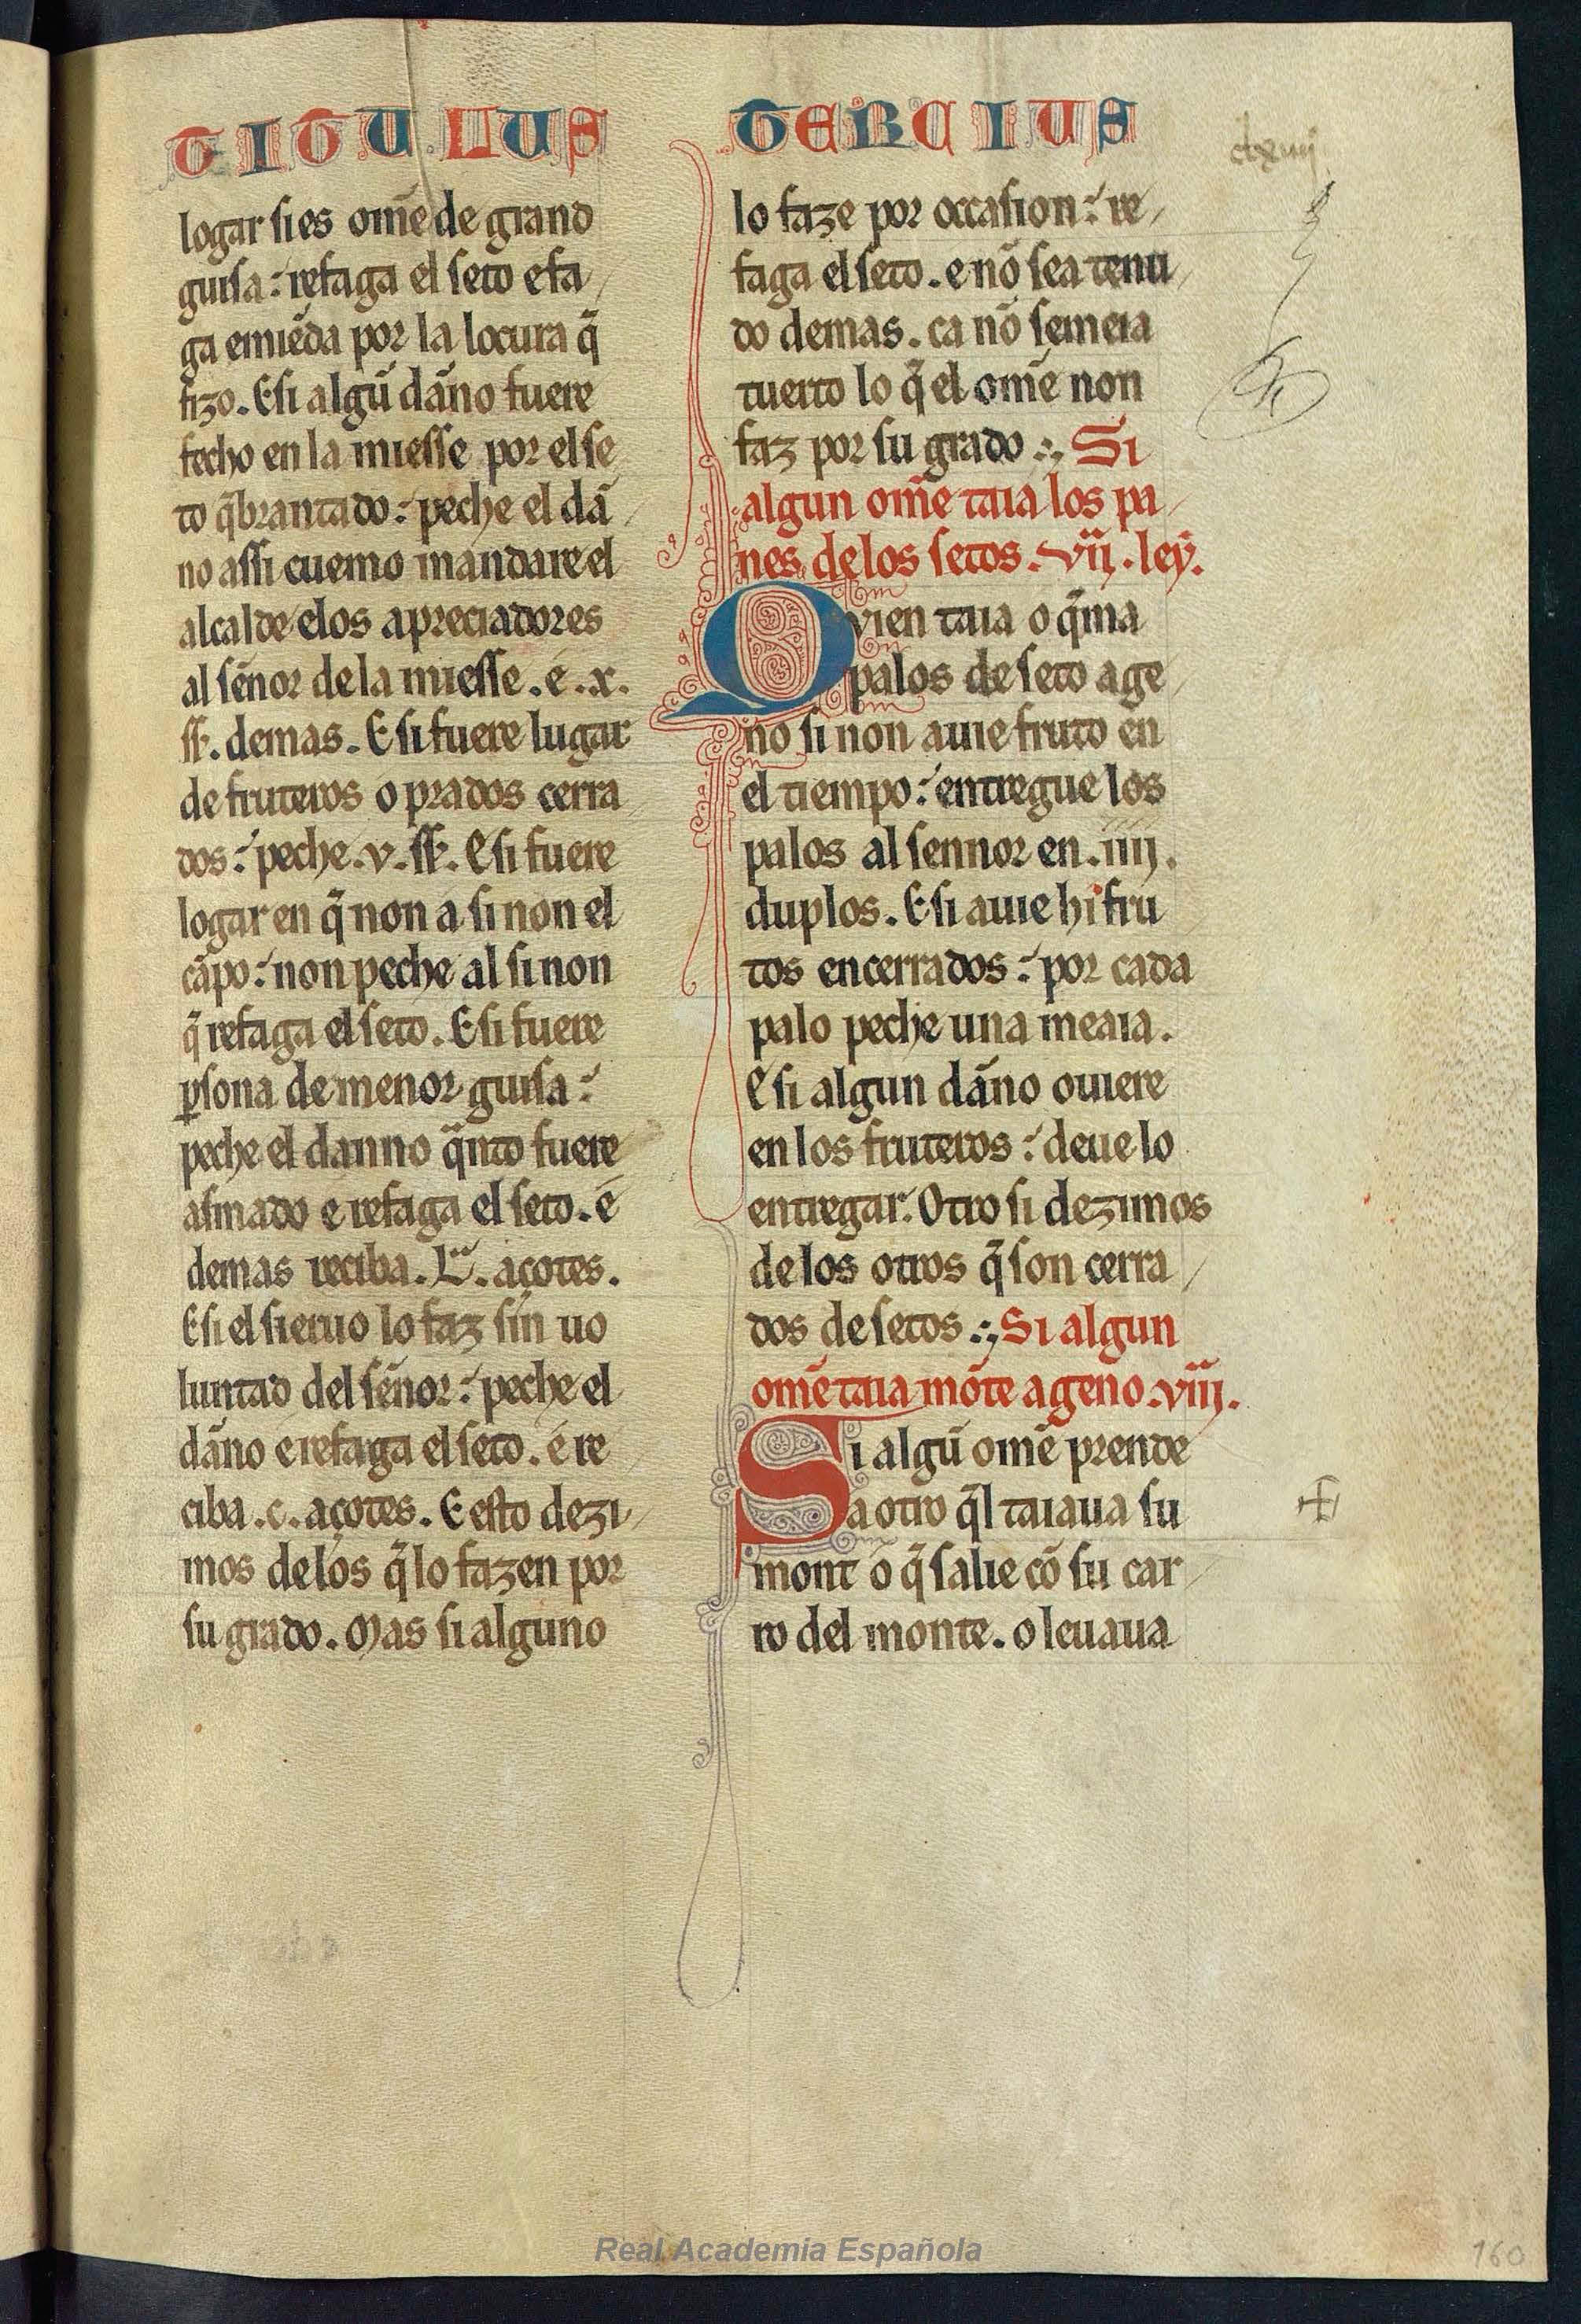 TITULUS
logar si es om̄e de grand
guisa: refaga el seto e fa/
ga emiēda por la locura q̄
fizo. E si algū dāno fuere
fecho en la miesse por el se
to q̄brantado: peche el dā/
no assi cuemo mandare el
alcalde elos apreciadores
al sēnor de la miesse. e .x.
ss̄. demas. E si fuere lugar
de fruteros o prados cerra
dos: peche .v. ss̄. E si fuere
logar en q̄ non a si non el
cāpo: non peche al si non
q̄ refaga el seto. E si fuere
ꝑsona de menor guisa:
peche el danno q̄nto fuere
asmado e refaga el seto. e
demas reciba .L. açotes.
E si el sieruo lo faz sin uo
luntad del sēnor: peche el
dāno e refaga el seto. e re
ciba .c. açotes. E esto dezi/
mos de los q̄ lo fazen por
su grado. Mas si alguno
TERCIUS
lo faze por occasion: re/
faga el seto. e nō sea tenu/
do demas. ca nō semeia
tuerto lo q̄ el om̄e non
faz por su grado:. Si
algun om̄e taia los pa/
nes de los setos. vij. ley.
Qvien taia o q̄ma
palos de seto age/
no si non auie fruto en
el tiempo: entregue los
palos al sennor en .iiij.
duplos. E si auie hi fru
tos encerrados: por cada
palo peche una meaia.
E si algun dāno ouiere
en los fruteros: deue lo
entregar. Otro si dezimos
de los otros q̄ son cerra/
dos de setos:. Si algun
om̄e taia mōte ageno. viij.
Si algū om̄e prende
a otro q̄l taiaua su
mont o q̄ salie cō su car/
ro del monte. o leuaua
Real Academia Española
160